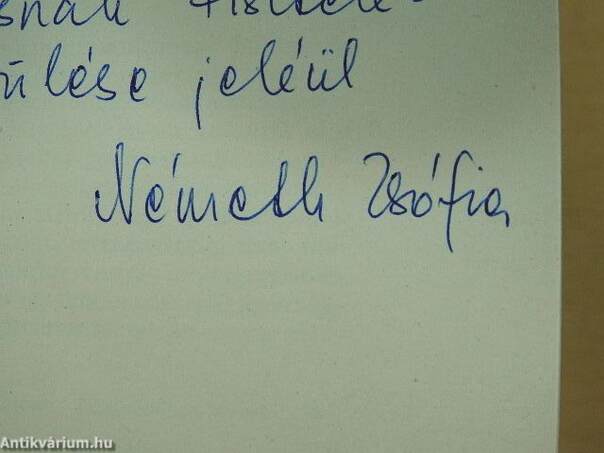 snak Tisztele-
ülése jeléül
Németh Zsófia
Antikvárium.hu